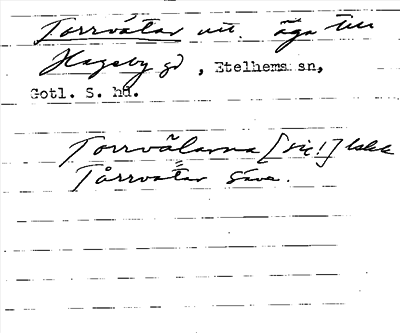 Torrvätar utt. äga till
Hageby gd, Etelhems sn,
Gotl. S. hd.
Torrvälarna [sic!] lskk
Tårrvätar Säve.